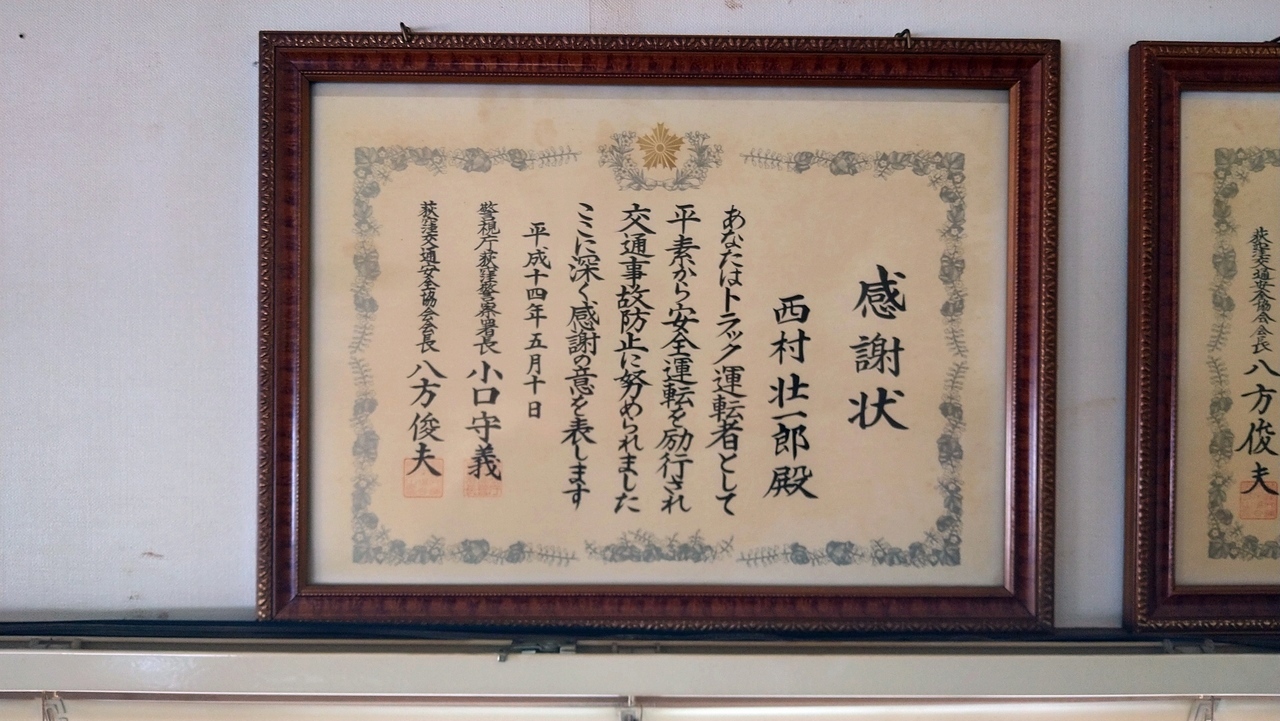 感謝状
西村壮一郎殿
あなたはトラック運転者として
平素から安全運転を励行され
交通事故防止に努められました
ここに深く感謝の意を表します
平成十四年五月十日
警視庁荻窪警察署長 小口守義
荻窪交通安全協会会長 八方俊夫
荻窪交通安全協会会長 八方俊夫